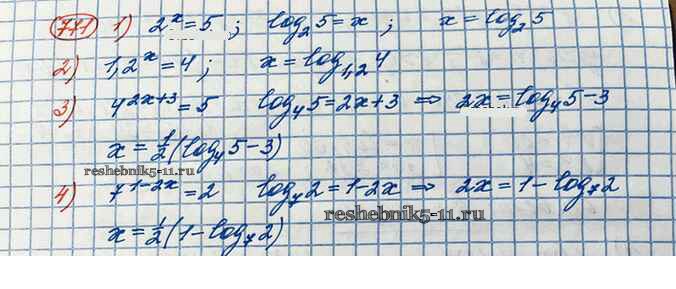 771 1) 2^x = 5 ; log₂5 = x ; x = log₂5
2) 1,2^x = 4 ; x = log₁,₂4
3) 4^(2x+3) = 5 log₄5 = 2x+3 ⇒ 2x = log₄5 - 3
x = 1/2 (log₄5 - 3)
reshebnik5-11.ru
4) 7^(1-2x) = 2 log₇2 = 1-2x ⇒ 2x = 1 - log₇2
reshebnik5-11.ru
x = 1/2 (1 - log₇2)